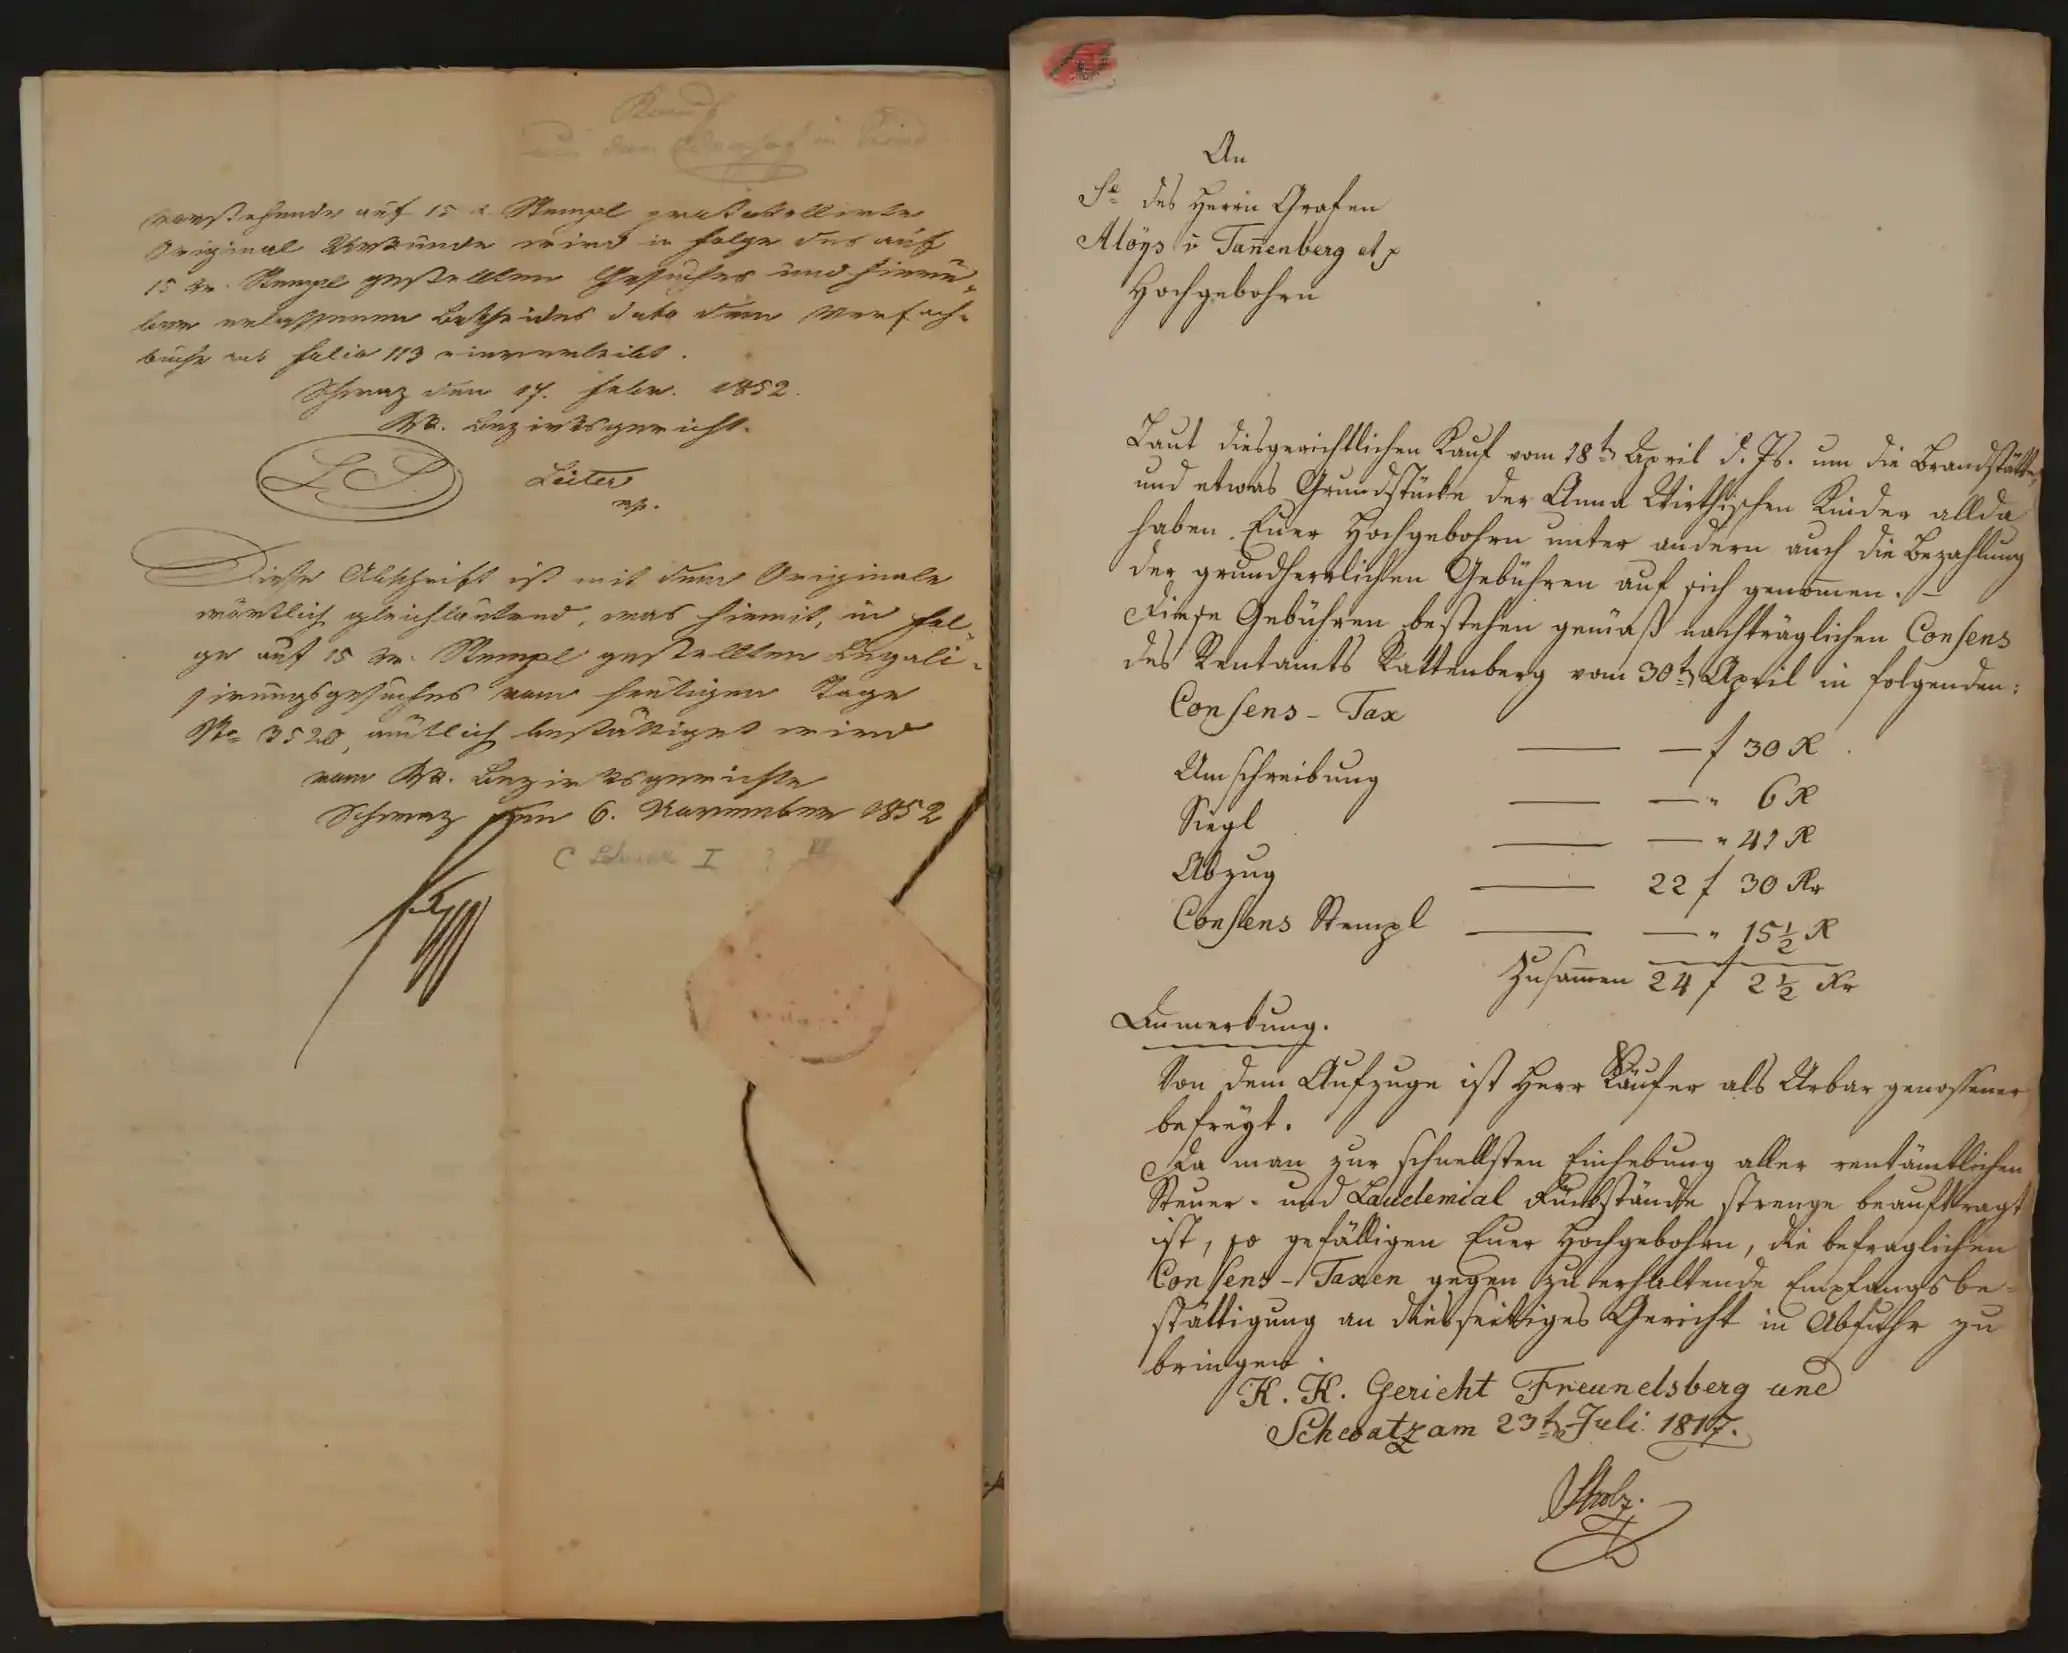 vorstehende auf 15 x Stempl protokollirte
Original Urkunde wird in Folge des auf
15 xr. Stempl gestellten Gesuches und hierü-
ber erlassenen Bescheides dato dem Verfach-
buche sub folio 113 einverleibt.
Schwaz den 17. Febr. 1852.
KK. Bezirksgericht.
L. S.
Leiter
mp.
Diese Abschrift ist mit dem Originale
wörtlich gleichlautend, was hiemit, in Fol-
ge auf 15 xr. Stempl gestellten Legali-
sirungsgesuches vom heutigen Tage
No 3520, ämtlich bestättiget wird
vom KK. Bezirksgerichte
Schwaz den 6. November 1852
An
Se des Herrn Grafen
Aloÿs v Tan̄enberg et p
Hochgebohrn
Laut diesgerichtlichen Kauf vom 18ten April d. Js. um die Brandstätte,
und etwas Grundstücke der Anna Wirthischen Kinder allda
haben Euer Hochgebohrn unter andern auch die Bezahlung
der grundherrlichen Gebühren auf sich genom̄en. –
Diese Gebühren bestehen gemäß nachträglichen Consens
des Rentamts Rattenberg vom 30ten April in folgenden:
Consens - Tax — — f 30 R
Umschreibung — — " 6 R
Siegl — — " 41 R
Abzug — 22 f 30 Kr
Consens Stempl — — " 15 1/2 R
Zusam̄en 24 f 2 1/2 Kr
Anmerkung.
Von dem Aufzuge ist Herr Käufer als Urbar genossener
befreÿt.
Da man zur schnellsten Einhebung aller rentämtlichen
Steuer- und Laudemial Rückstände strenge beauftragt
ist, so gefälligen Euer Hochgebohrn, die befraglichen
Consens - Taxen gegen zu erhaltende Empfangsbe-
stättigung an diesseitiges Gericht in Abfuhr zu
bringen.
K. K. Gericht Freundsberg und
Schwatz am 23ten Juli 1817.